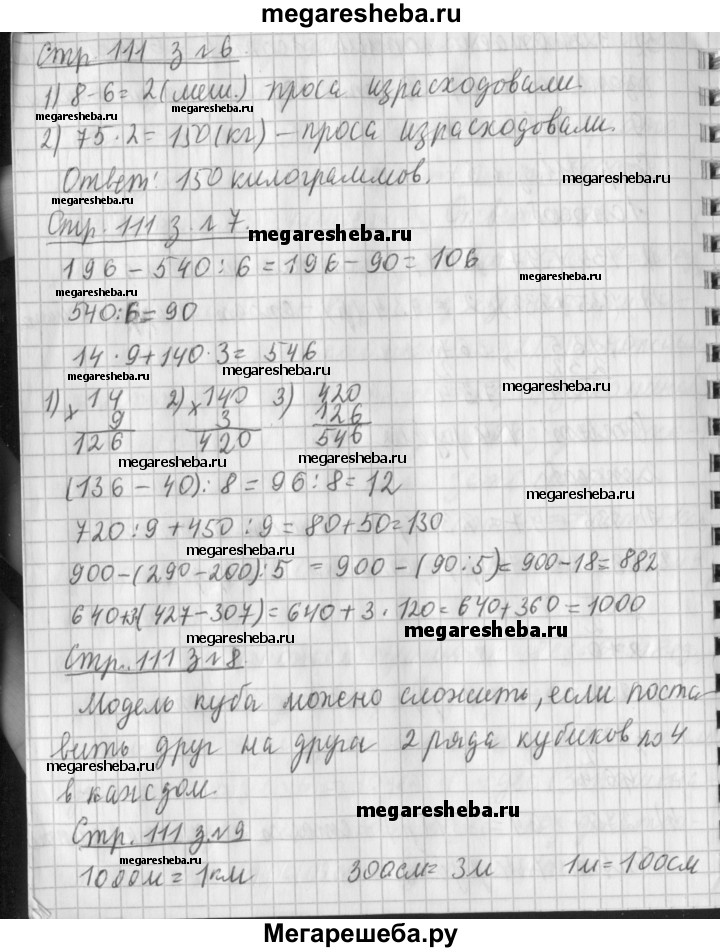 megaresheba.ru
Стр. 111 з №6
1) 8-6= 2(меш.) проса израсходовали.
megaresheba.ru
2) 75·2=150(кг) – проса израсходовали.
Ответ: 150 килограммов.
megaresheba.ru
Стр. 111 з №7.
megaresheba.ru
196 – 540:6 = 196 – 90 = 106
megaresheba.ru
megaresheba.ru
540:6= 90
14 · 9 + 140 · 3 = 546
megaresheba.ru megaresheba.ru
megaresheba.ru
1) 14 2) 140 3) 420
x 9 x 3 126
126 420 546
megaresheba.ru
(136 – 40): 8 = 96 : 8 = 12
megaresheba.ru
720:9 + 450 : 9 = 80+50=130
megaresheba.ru
900–(290–200):5 = 900 – (90:5)= 900–18= 882
megaresheba.ru
640+3(427–307)= 640 + 3 · 120= 640+360 = 1000
megaresheba.ru megaresheba.ru
Стр. 111 з №8
Модель куба можно сложить, если поста
вить друг на друга 2 ряда кубиков по 4
megaresheba.ru
в каждом.
megaresheba.ru
Стр. 111 з. №9
megaresheba.ru
1000м = 1км 300см= 3м 1м=100см
megaresheba.ru
Мегарешеба.ру